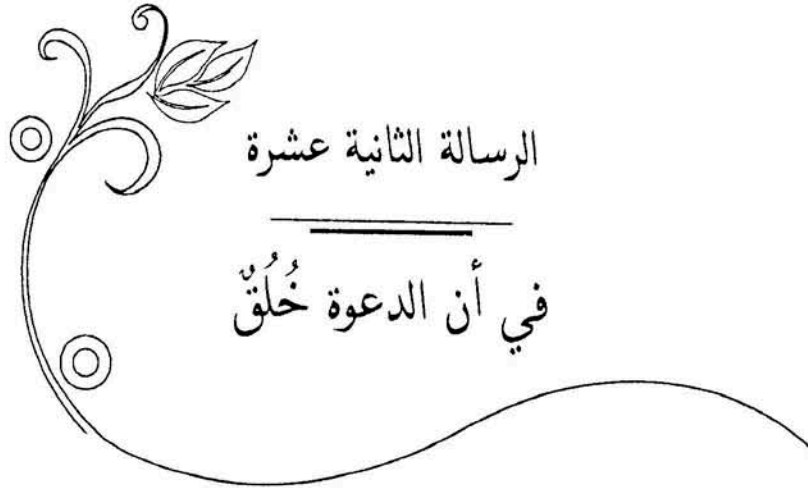 الرسالة الثانية عشرة
في أن الدعوة خُلُقٌ